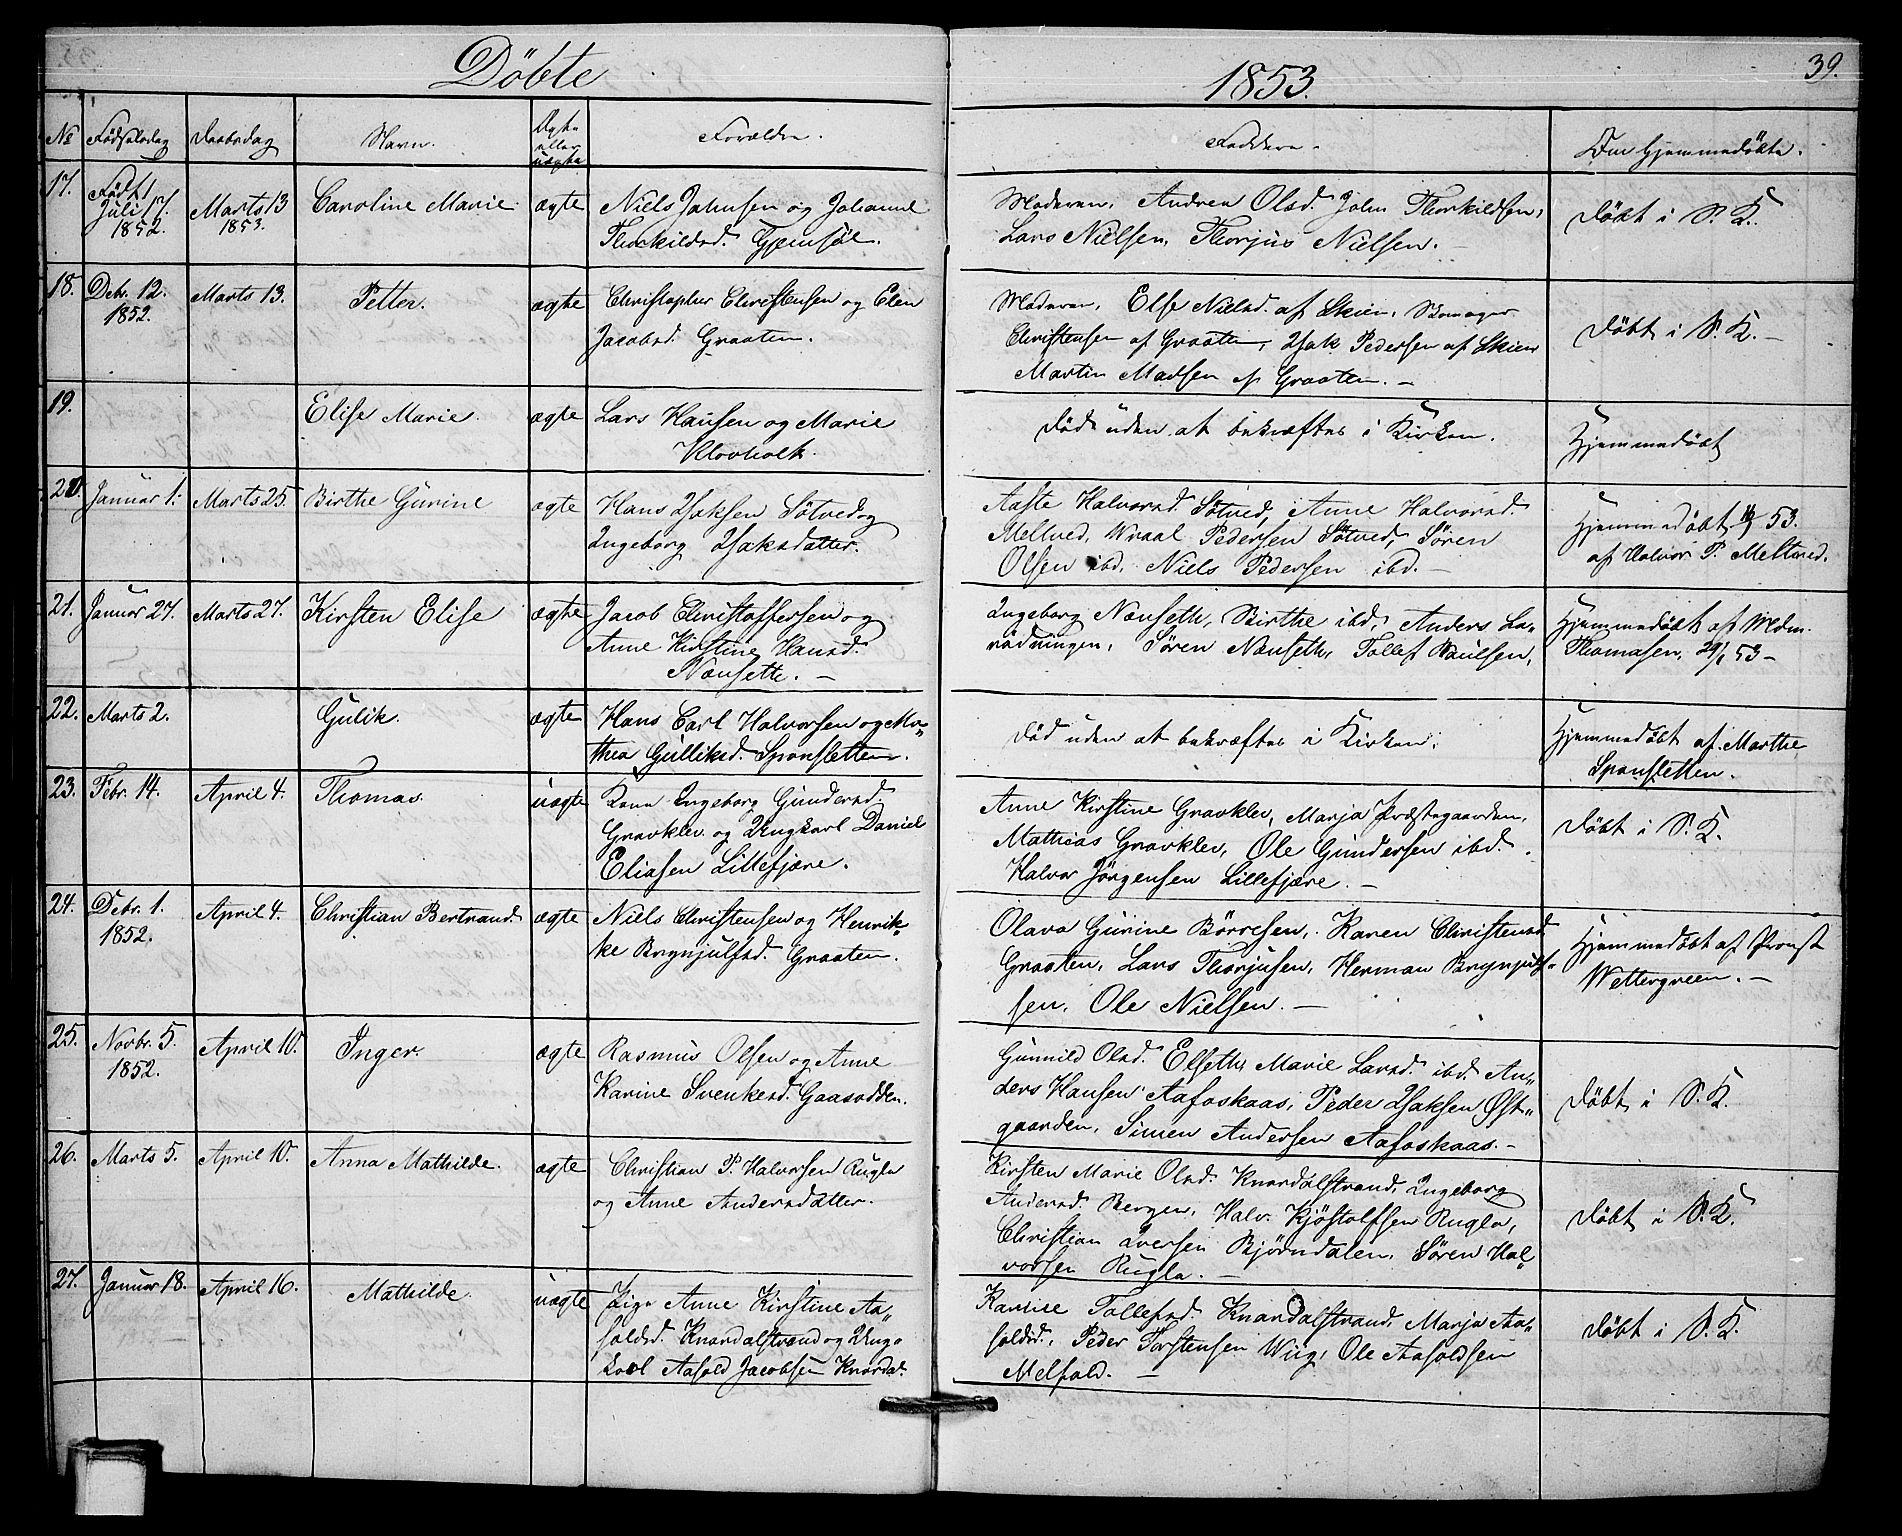 Döbte
1853.
39.
No Fødselsdag Daabsdag Navn. Ægte eller uægte Forældre. Faddere. Om hjemmedöbte.
17. Født Juli 17. 1852. Marts 13 1853. Caroline Marie ægte
Niels Jahnsen og Johanne
Thorkildsd. Gjemsöe.
Moderen, Andrea Olsd. John Thorkildsen,
Lars Nielsen, Thorjus Nielsen.
Döbt i S. K.
18. Debr. 12. 1852. Marts 13. Petter. ægte
Christopher Christensen og Elen
Jacobsd. Graaten.
Moderen, Else Nielsd. af Skien,
Christensen af Graaten, Isak Pedersen af Skien
Martin Madsen af Graaten.
Döbt i S. K.
19. Elise Marie. ægte
Lars Hansen og Marie
Klovholt.
Död uden at bekræftes i Kirken.
Hjemmedöbt
20. Januar 1. Marts 25. Birthe Gurine ægte
Hans Isaksen Sötved og
Ingeborg Isaksdatter.
Aaste Halvorsd. Sötved, Anne Halvorsd.
Meltved, Wraal Pedersen Sötved, Sören
Olsen ibd. Niels Pedersen ibd.
Hjemmedöbt 53.
af Halvor P. Meltved.
21. Januar 27. Marts 27. Kirsten Elise ægte
Jacob Christoffersen og
Anne Kirstine Hansd.
Nenseth.
Ingeborg Nenseth, Birthe ibd, Anders La-
rödningen, Sören Nenseth, Tollef Paulsen,
Hjemmedöbt af Mdm.
Thomasen, 29/1 53
22. Marts 2. Gulik. ægte
Hans Carl Halvorsen og Ma-
thea Gulliksd. Sponsletten.
Död uden at bekræftes i Kirken.
Hjemmedöbt af Marthe
Sponsletten.
23. Febr. 14. April 4. Thomas. uægte
Kone Ingeborg Gundersd.
Gravklev og Ungkarl Daniel
Eliasen Lillefjære.
Anne Kirstine Gravklev, Marja Præstegaarden,
Mathias Gravklev, Ole Gundersen ibd.
Halvor Jörgensen Lillefjære.
Döbt i S. K.
24. Debr. 1. 1852. April 4. Christian Bertrand. ægte
Niels Christensen og Henrik-
ke Brynjulfsd. Graaten.
Olava Gurine Börresen, Karen Christensd.
Graaten, Lars Thorjusen, Herman Brynjulf-
sen, Ole Nielsen.
Hjemmedöbt af Provst
Wettergreen.
25. Novbr. 5. 1852. April 10. Inger. ægte
Rasmus Olsen og Anne
Karine Svenkesd. Gaasodden.
Gunnild Olsd. Elseth, Marie Larsd. ibd. An-
ders Hansen Aafoskaas, Peder Isaksen Øst-
gaarden, Simen Andersen Aafoskaas.
Döbt i S. K.
26. Marts 5. April 10. Anna Mathilde. ægte
Christian P. Halvorsen Rugla
og Anne Andersdatter.
Kirsten Marie Olsd. Knardalstrand, Ingeborg
Andersd. Bergen, Halv. Kjöstolfsen Rugla,
Christian Iversen Bjöndalen, Sören Hal-
vorsen Rugla.
Döbt i S. K.
27. Januar 18. April 16. Mathilde. uægte
Pige Anne Kirstine Aa-
soldsd. Knardalstrand og Ung-
karl Aasold Jacobsen Knardal.
Karine Tollefsd. Knardalstrand, Marja Aa-
soldsd., Peder Torstensen Wiig, Ole Aasoldsen
Melfald.
Döbt i S. K.